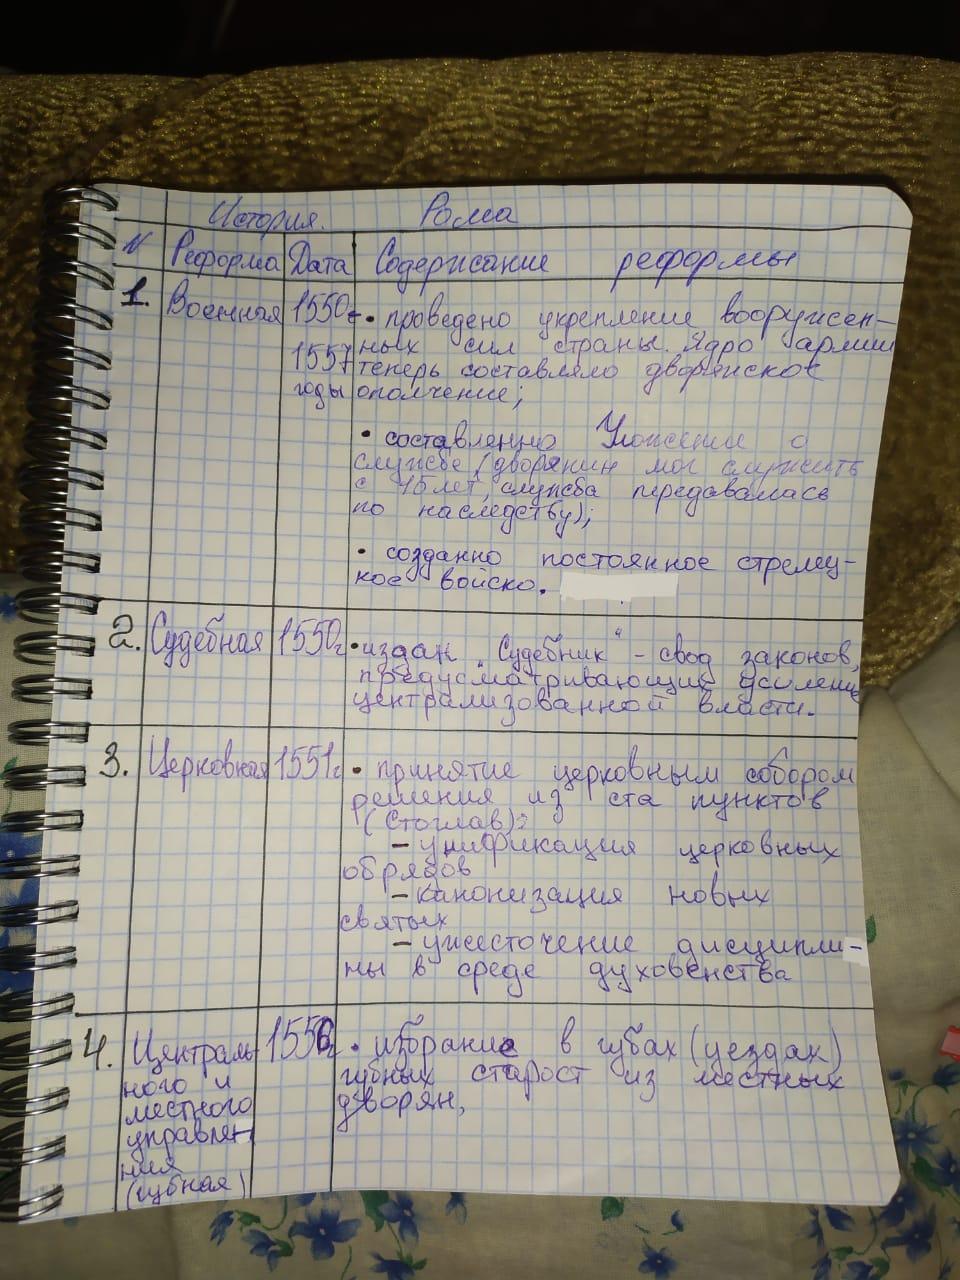 История. Рома
№ Реформа Дата Содержание реформы
1. Военная 1550-
1557
годы
• проведено укрепление вооружен-
ных сил страны. Ядро армии
теперь составляло дворянское
ополчение;
• составленно Уложение о
службе (дворянин мог служить
с 15 лет, служба передавалась
по наследству);
• созданно постоянное стрелец-
кое войско.
2. Судебная 1550г
• издан "Судебник" - свод законов,
предусматривающий усиление
централизованной власти.
3. Церковная 1551г
• принятие церковным собором
решения из ста пунктов
(Стоглав):
- унификация церковных
обрядов
- канонизация новых
святых
- ужесточение дисципли-
ны в среде духовенства
4. Централь
ного и
местного
управле-
ния
(губная)
1556г
• избрание в губах (уездах)
губных старост из местных
дворян,